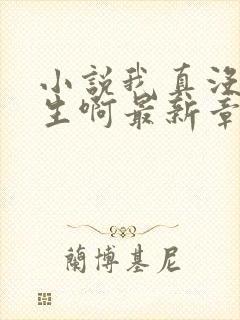 小說我真没
生啊最新章
蘭博基尼